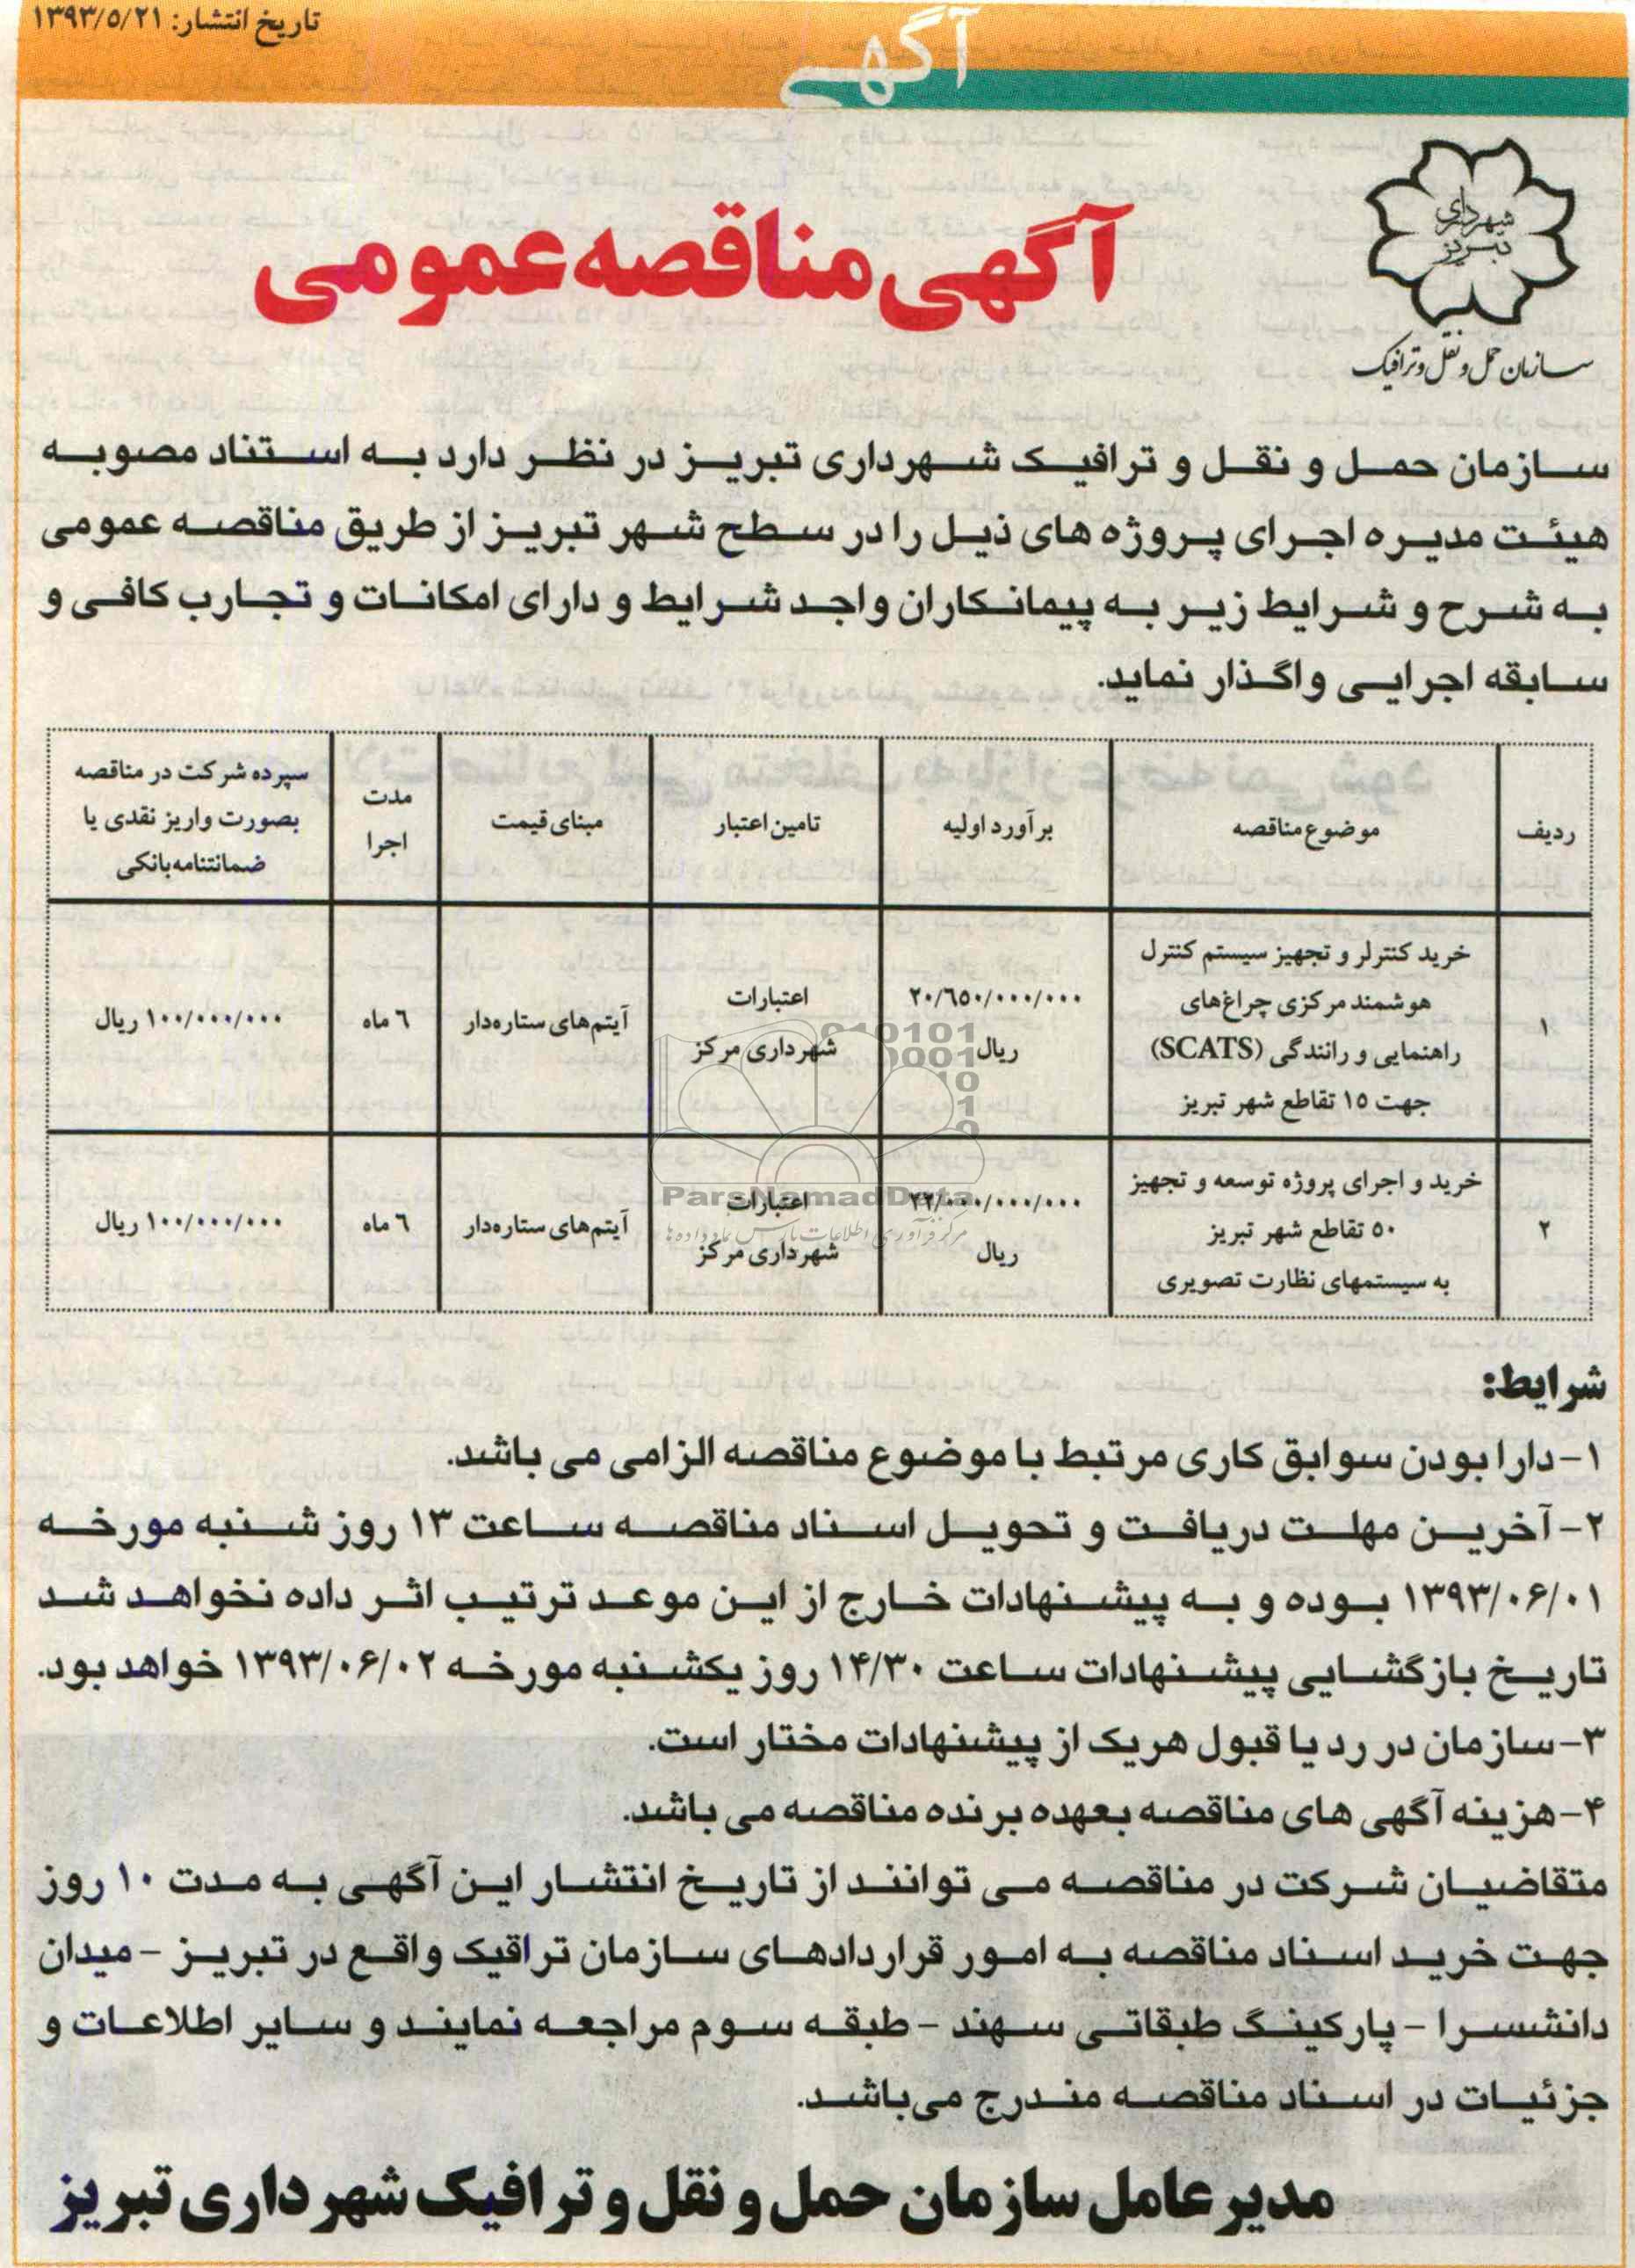 تاریخ انتشار: ۱۳۹۳/۵/۲۱
آگهی
شهرداری
تبریز
سازمان حمل و نقل و ترافیک
آگهی مناقصه عمومی
سازمان حمل و نقل و ترافیک شهرداری تبریز در نظر دارد به استناد مصوبه
هیئت مدیره اجرای پروژه های ذیل را در سطح شهر تبریز از طریق مناقصه عمومی
به شرح و شرایط زیر به پیمانکاران واجد شرایط و دارای امکانات و تجارب کافی و
سابقه اجرایی واگذار نماید.
ردیف
موضوع مناقصه
برآورد اولیه
تامین اعتبار
مبنای قیمت
مدت
اجرا
سپرده شرکت در مناقصه
بصورت واریز نقدی یا
ضمانتنامه بانکی
۱
خرید کنترلر و تجهیز سیستم کنترل
هوشمند مرکزی چراغ‌های
راهنمایی و رانندگی (SCATS)
جهت ۱۵ تقاطع شهر تبریز
۲۰/۶۵۰/۰۰۰/۰۰۰
ریال
اعتبارات
شهرداری مرکز
آیتم‌های ستاره‌دار
۶ ماه
۱۰۰/۰۰۰/۰۰۰ ریال
۲
خرید و اجرای پروژه توسعه و تجهیز
۵۰ تقاطع شهر تبریز
به سیستمهای نظارت تصویری
ریال
اعتبارات
شهرداری مرکز
آیتم‌های ستاره‌دار
۶ ماه
۱۰۰/۰۰۰/۰۰۰ ریال
ParsNamadData
شرایط:
۱- دارا بودن سوابق کاری مرتبط با موضوع مناقصه الزامی می باشد.
۲- آخرین مهلت دریافت و تحویل اسناد مناقصه ساعت ۱۳ روز شنبه مورخه
۱۳۹۳/۰۶/۰۱ بوده و به پیشنهادات خارج از این موعد ترتیب اثر داده نخواهد شد
تاریخ بازگشایی پیشنهادات ساعت ۱۴/۳۰ روز یکشنبه مورخه ۱۳۹۳/۰۶/۰۲ خواهد بود.
۳- سازمان در رد یا قبول هریک از پیشنهادات مختار است.
۴- هزینه آگهی های مناقصه بعهده برنده مناقصه می باشد.
متقاضیان شرکت در مناقصه می توانند از تاریخ انتشار این آگهی به مدت ۱۰ روز
جهت خرید اسناد مناقصه به امور قراردادهای سازمان تراقیک واقع در تبریز - میدان
دانشسرا - پارکینگ طبقاتی سهند - طبقه سوم مراجعه نمایند و سایر اطلاعات و
جزئیات در اسناد مناقصه مندرج می‌باشد.
مدیر عامل سازمان حمل و نقل و ترافیک شهرداری تبریز